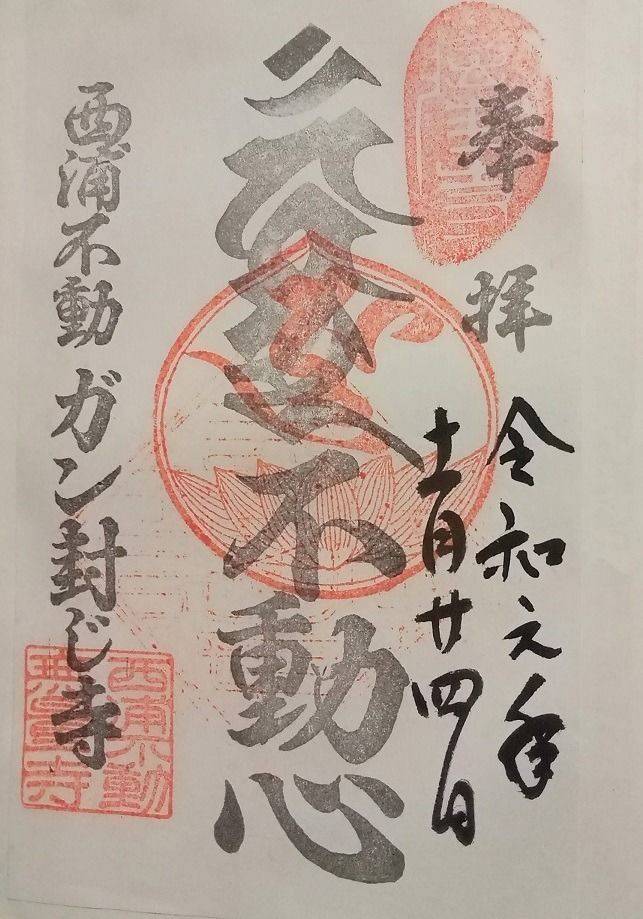 奉拝
令和元年
十一月廿四日
不動心
西浦不動 ガン封じ寺
西浦不動
無量寺